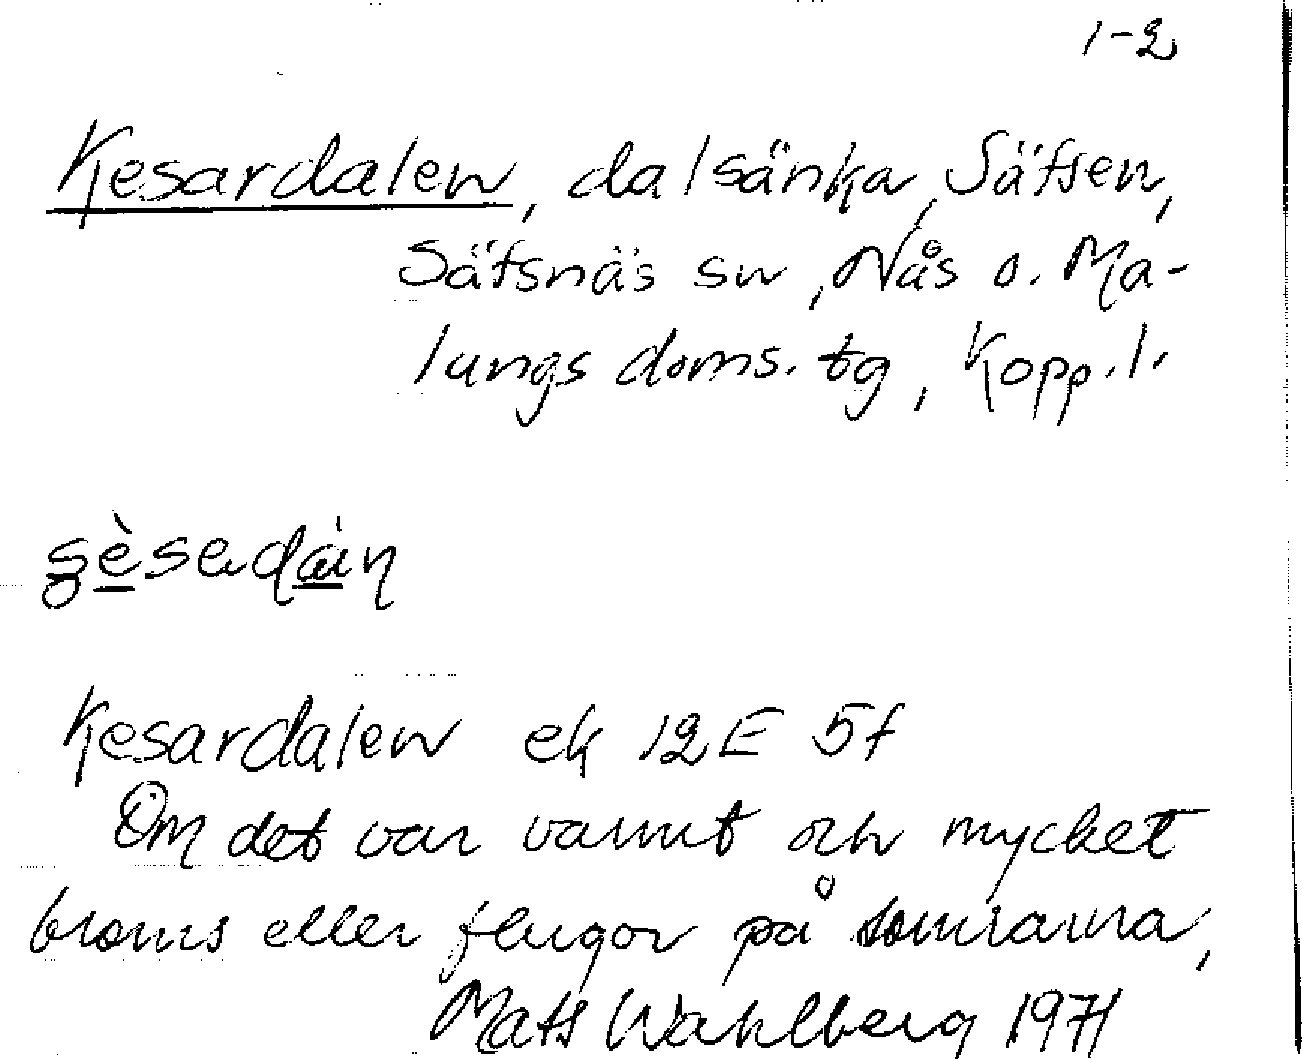 1-2
Kesardalen, dalsänka, Säfsen,
Säfsnäs sn, Nås o. Ma-
lungs doms. tg, Kopp. l.
Kesardalen ek 12E 5f
Om det var varmt och mycket
broms eller flugor på somrarna,
Mats Wahlberg 1971